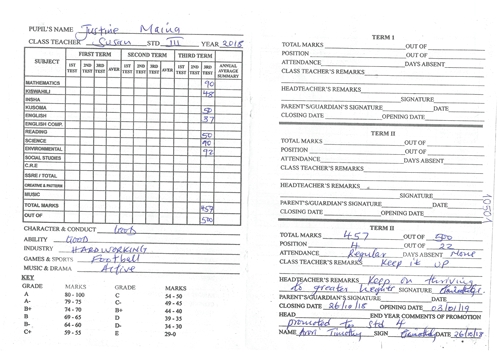 PUPIL'S NAME Justine Maina
CLASS TEACHER Susan STD III YEAR 2018
SUBJECT FIRST TERM SECOND TERM THIRD TERM ANNUAL AVERAGE SUMMARY
1ST TEST 2ND TEST 3RD TEST AVER 1ST TEST 2ND TEST 3RD TEST AVER 1ST TEST 2ND TEST 3RD TEST
MATHEMATICS 90
KISWAHILI 48
INSHA
KUSOMA 50
ENGLISH 37
ENGLISH COMP.
READING 50
SCIENCE 90
ENVIRONMENTAL 92
SOCIAL STUDIES
C.R.E
SSRE / TOTAL
CREATIVE & PATTERN
MUSIC
TOTAL MARKS 457
OUT OF 500
CHARACTER & CONDUCT Good
ABILITY Good
INDUSTRY HARDWORKING
GAMES & SPORTS Football
MUSIC & DRAMA Active
KEY
GRADE MARKS GRADE MARKS
A 80 - 100 C 54 - 50
A- 79 - 75 C- 49 - 45
B+ 74 - 70 B+ 44 - 40
B 69 - 65 D 39 - 35
B- 64 - 60 D- 34 - 30
C+ 59 - 55 E 29-0
TERM I
TOTAL MARKS OUT OF
POSITION OUT OF
ATTENDANCE DAYS ABSENT
CLASS TEACHER'S REMARKS
HEADTEACHER'S REMARKS
SIGNATURE
PARENT'S/GUARDIAN'S SIGNATURE DATE
CLOSING DATE OPENING DATE
TERM II
TOTAL MARKS OUT OF
POSITION OUT OF
ATTENDANCE DAYS ABSENT
CLASS TEACHER'S REMARKS
HEADTEACHER'S REMARKS
SIGNATURE
PARENT'S/GUARDIAN'S SIGNATURE DATE
CLOSING DATE OPENING DATE
10501
TERM II
TOTAL MARKS 457 OUT OF 500
POSITION 4 OUT OF 22
ATTENDANCE Regular DAYS ABSENT None
CLASS TEACHER'S REMARKS Keep it up
HEADTEACHER'S REMARKS Keep on thriving
to greater heights SIGNATURE
PARENT'S/GUARDIAN'S SIGNATURE DATE
CLOSING DATE 26/10/18 OPENING DATE 03/01/19
HEAD END YEAR COMMENTS OF PROMOTION
promoted to std 4
NAME Timothy SIGN DATE 26/10/18